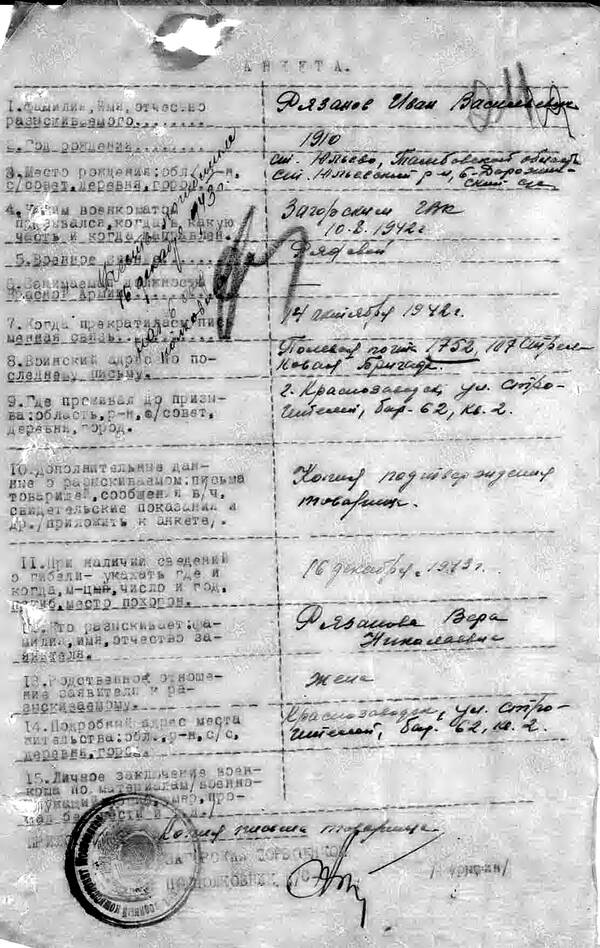 АНКЕТА.
1.Фамилия,Имя,отчество
разыскиваемого
Рязанов Иван Васильевич
2.Год рождения
1910
3.Место рождения:обл.,р-н,
с/совет,деревня,город.
ст. Юльево, Тамбовской область
ст. Юльевский р-н, 6-
ский с/с
4.Каким военкоматом
призывался,когда,в какую
часть и когда направлен.
Загорским ГВК
10.8.1942г
5.Военное звание
Рядовой
6.Занимаемая должность
Красной Армии
—
7.Когда прекратилась пис-
менная связь.
14 октября 1942г.
8.Воинский адрес по по-
следнему письму.
Полевая почта 1752, 107 Стрел-
ковая Бригада.
9.Где проживал до призы-
ва:область,р-н,с/совет,
деревня,город.
г. Краснозаводск, ул. Стро-
ителей, бар. 62, кв. 2.
10.Дополнительные дан-
ные о разыскиваемом:письма
товарищей,сообщения в/ч,
свидетельские показания и
др./приложить к анкете/.
Копия подтверждения
товарища.
11.При наличии сведений
о гибели- указать где и
когда,м-цын,число и год,
погиб,место похорон.
16 декабря 1943г.
12.Кто разыскивает:фа-
милия,имя,отчество за-
явителя.
Рязанова Вера
Николаевна
13.Родственное отноше-
ние заявителя к ра-
зыскиваемому.
жена
14.Подробный адрес места
жительства:обл.,р-н,с/с,
деревня,город.
Краснозаводск, ул. Стро-
ителей, бар. 62, кв. 2.
15.Личное заключение воен-
кома по материалам/военно-
служащий погиб,умер,про-
пал без вести и т.д./
Копия письма товарища
ЗАГОРСКИЙ ГОРВОЕНКОМ
ПОДПОЛКОВНИК